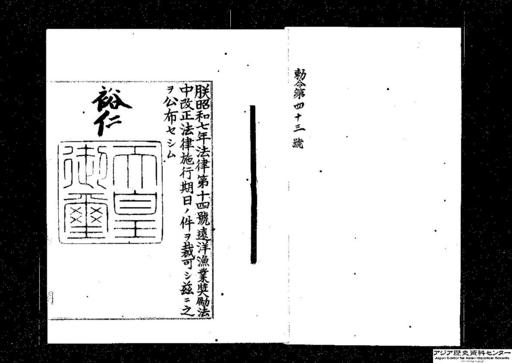 勅令第四十三號
朕昭和七年法律第十四號遠洋漁業奬勵法
中改正法律施行期日ノ件ヲ裁可シ茲ニ之
ヲ公布セシム
裕仁
天皇
御璽
アジア歴史資料センター
Japan Center for Asian Historical Records